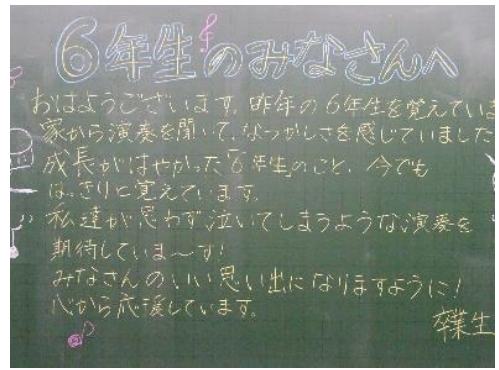 6年生のみなさんへ
おはようございます。昨年の6年生を覚えていま
家から演奏を聞いて、なつかしさを感じていました
成長がはやかった「6年生」のこと、今でも
はっきりと覚えています。
私達が思わず泣いてしまうような演奏を
期待していま〜す!
みなさんのいい思い出になりますように!
心から応援しています。
卒業生